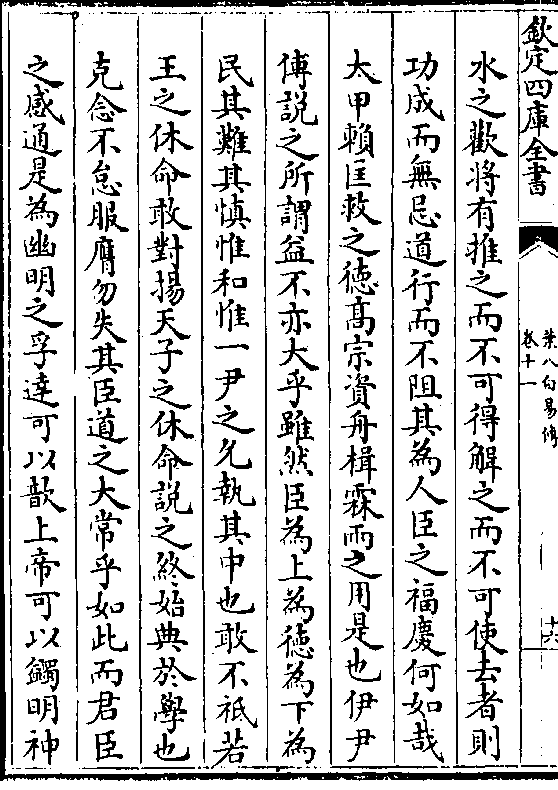 欽定四庫全書
葉八白易傳
卷十一
十六
水之歡將有推之而不可得解之而不可使去者則
功成而無忌道行而不阻其為人臣之福慶何如哉
太甲賴匡救之徳髙宗資舟楫霖雨之用是也伊尹
傅說之所謂益不亦大乎雖然臣為上為徳為下為
民其難其慎惟和惟一尹之允執其中也敢不祗若
王之休命敢對揚天子之休命說之終始典於學也
克念不怠服膺勿失其臣道之大常乎如此而君臣
之感通是為幽明之孚達可以歆上帝可以蠲明神